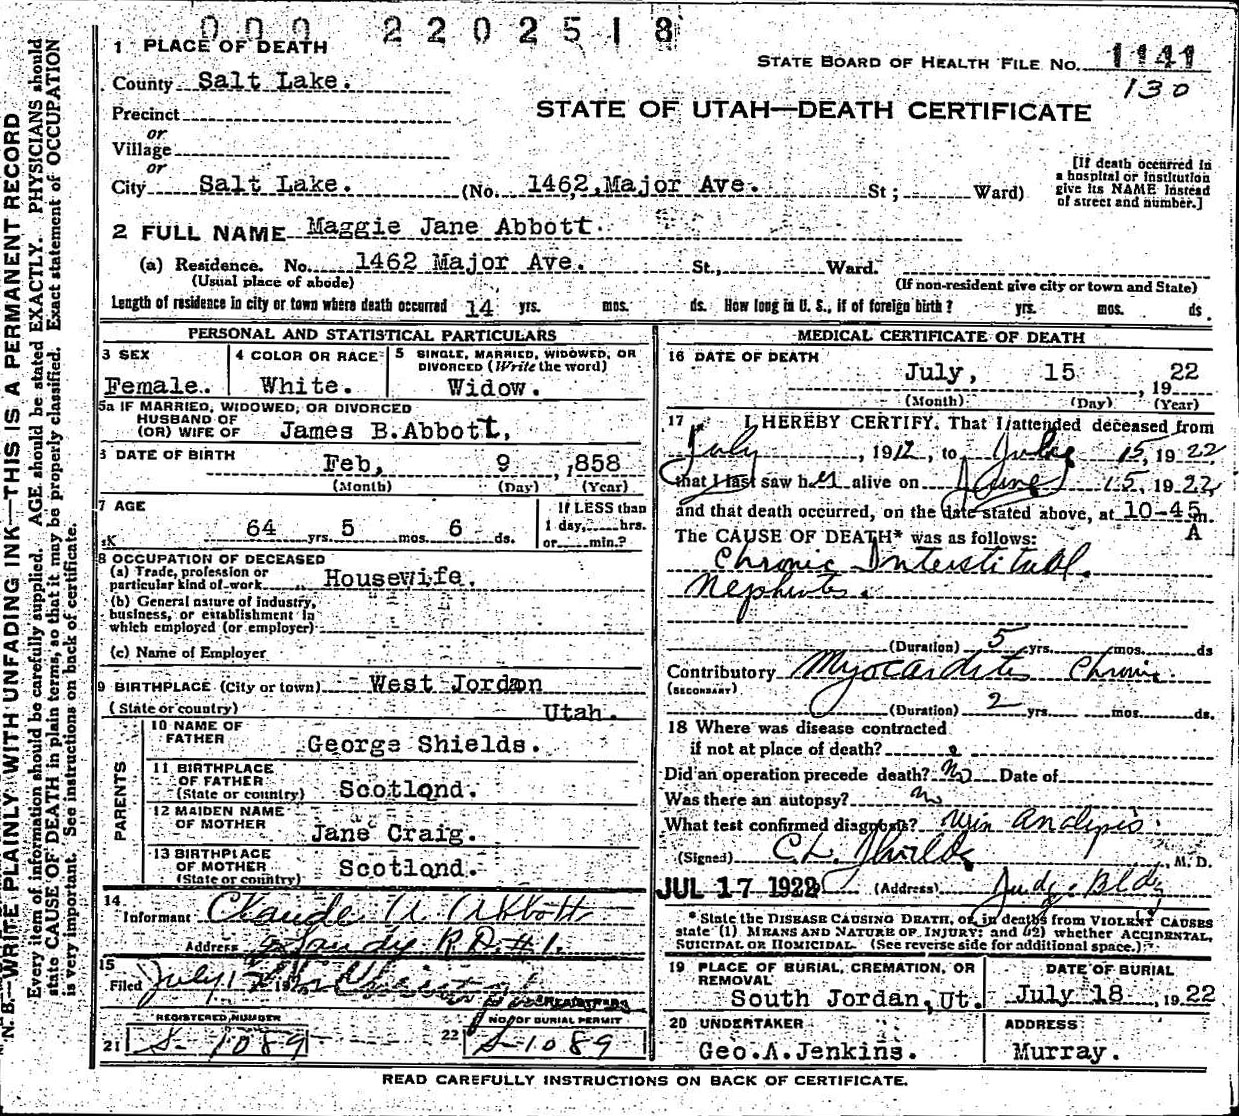 000 2202518
1 PLACE OF DEATH
STATE BOARD OF HEALTH FILE NO. 1141
130
County Salt Lake.
STATE OF UTAH—DEATH CERTIFICATE
Precinct
or
Village
or
City Salt Lake. (No. 1462, Major Ave. St; Ward)
[If death occurred in a hospital or institution give its NAME instead of street and number.]
2 FULL NAME Maggie Jane Abbott.
(a) Residence. No. 1462 Major Ave. St., Ward.
(Usual place of abode) (If non-resident give city or town and State)
Length of residence in city or town where death occurred 14 yrs. mos. ds. How long in U. S., if of foreign birth? yrs. mos. ds.
PERSONAL AND STATISTICAL PARTICULARS
3 SEX
Female.
4 COLOR OR RACE
White.
5 SINGLE, MARRIED, WIDOWED, OR DIVORCED (Write the word)
Widow.
5a IF MARRIED, WIDOWED, OR DIVORCED
HUSBAND OF
(OR) WIFE OF James B.Abbott,
6 DATE OF BIRTH
Feb, 9 ,1858
(Month) (Day) (Year)
7 AGE
64 yrs. 5 mos. 6 ds.
If LESS than
1 day, hrs.
or min.?
8 OCCUPATION OF DECEASED
(a) Trade, profession or particular kind of work Housewife.
(b) General nature of industry, business, or establishment in which employed (or employer)
(c) Name of Employer
9 BIRTHPLACE (City or town) West Jordan
(State or country) Utah.
PARENTS
10 NAME OF FATHER George Shields.
11 BIRTHPLACE OF FATHER (State or country) Scotland.
12 MAIDEN NAME OF MOTHER Jane Craig.
13 BIRTHPLACE OF MOTHER (State or country) Scotland.
14
Informant Claude A Abbott
Address Sandy R.D. #1.
15
Filed July 17
REGISTRAR
REGISTERED NUMBER
21 S-1089
NO. OF BURIAL PERMIT
22 S-1089
MEDICAL CERTIFICATE OF DEATH
16 DATE OF DEATH
July, 15 , 1922
(Month) (Day) (Year)
17 I HEREBY CERTIFY, That I attended deceased from
July , 1912, to July 15, 1922
that I last saw her alive on June 15, 1922,
and that death occurred, on the date stated above, at 10-45 m.
A
The CAUSE OF DEATH* was as follows:
Chronic Interstitual.
Nephrites.
(Duration) 5 yrs. mos. ds
Contributory Myocarditis Chronic
(SECONDARY)
(Duration) 2 yrs. mos. ds.
18 Where was disease contracted
if not at place of death?
Did an operation precede death? No Date of
Was there an autopsy? no
What test confirmed diagnosis? Urin Analysis.
(Signed) C.L. Shields , M. D.
JUL 17 1922 (Address) Judge Bldg
*State the DISEASE CAUSING DEATH, or, in deaths from VIOLENT CAUSES
state (1) MEANS AND NATURE OF INJURY; and (2) whether ACCIDENTAL,
SUICIDAL OR HOMICIDAL. (See reverse side for additional space.)
19 PLACE OF BURIAL, CREMATION, OR REMOVAL
South Jordan, Ut.
DATE OF BURIAL
July 18 , 1922
20 UNDERTAKER
Geo.A.Jenkins.
ADDRESS
Murray.
READ CAREFULLY INSTRUCTIONS ON BACK OF CERTIFICATE.
N. B.—WRITE PLAINLY WITH UNFADING INK—THIS IS A PERMANENT RECORD
Every item of information should be carefully supplied. AGE should be stated EXACTLY. PHYSICIANS should
state CAUSE OF DEATH in plain terms, so that it may be properly classified. Exact statement of OCCUPATION
is very important. See instructions on back of certificate.